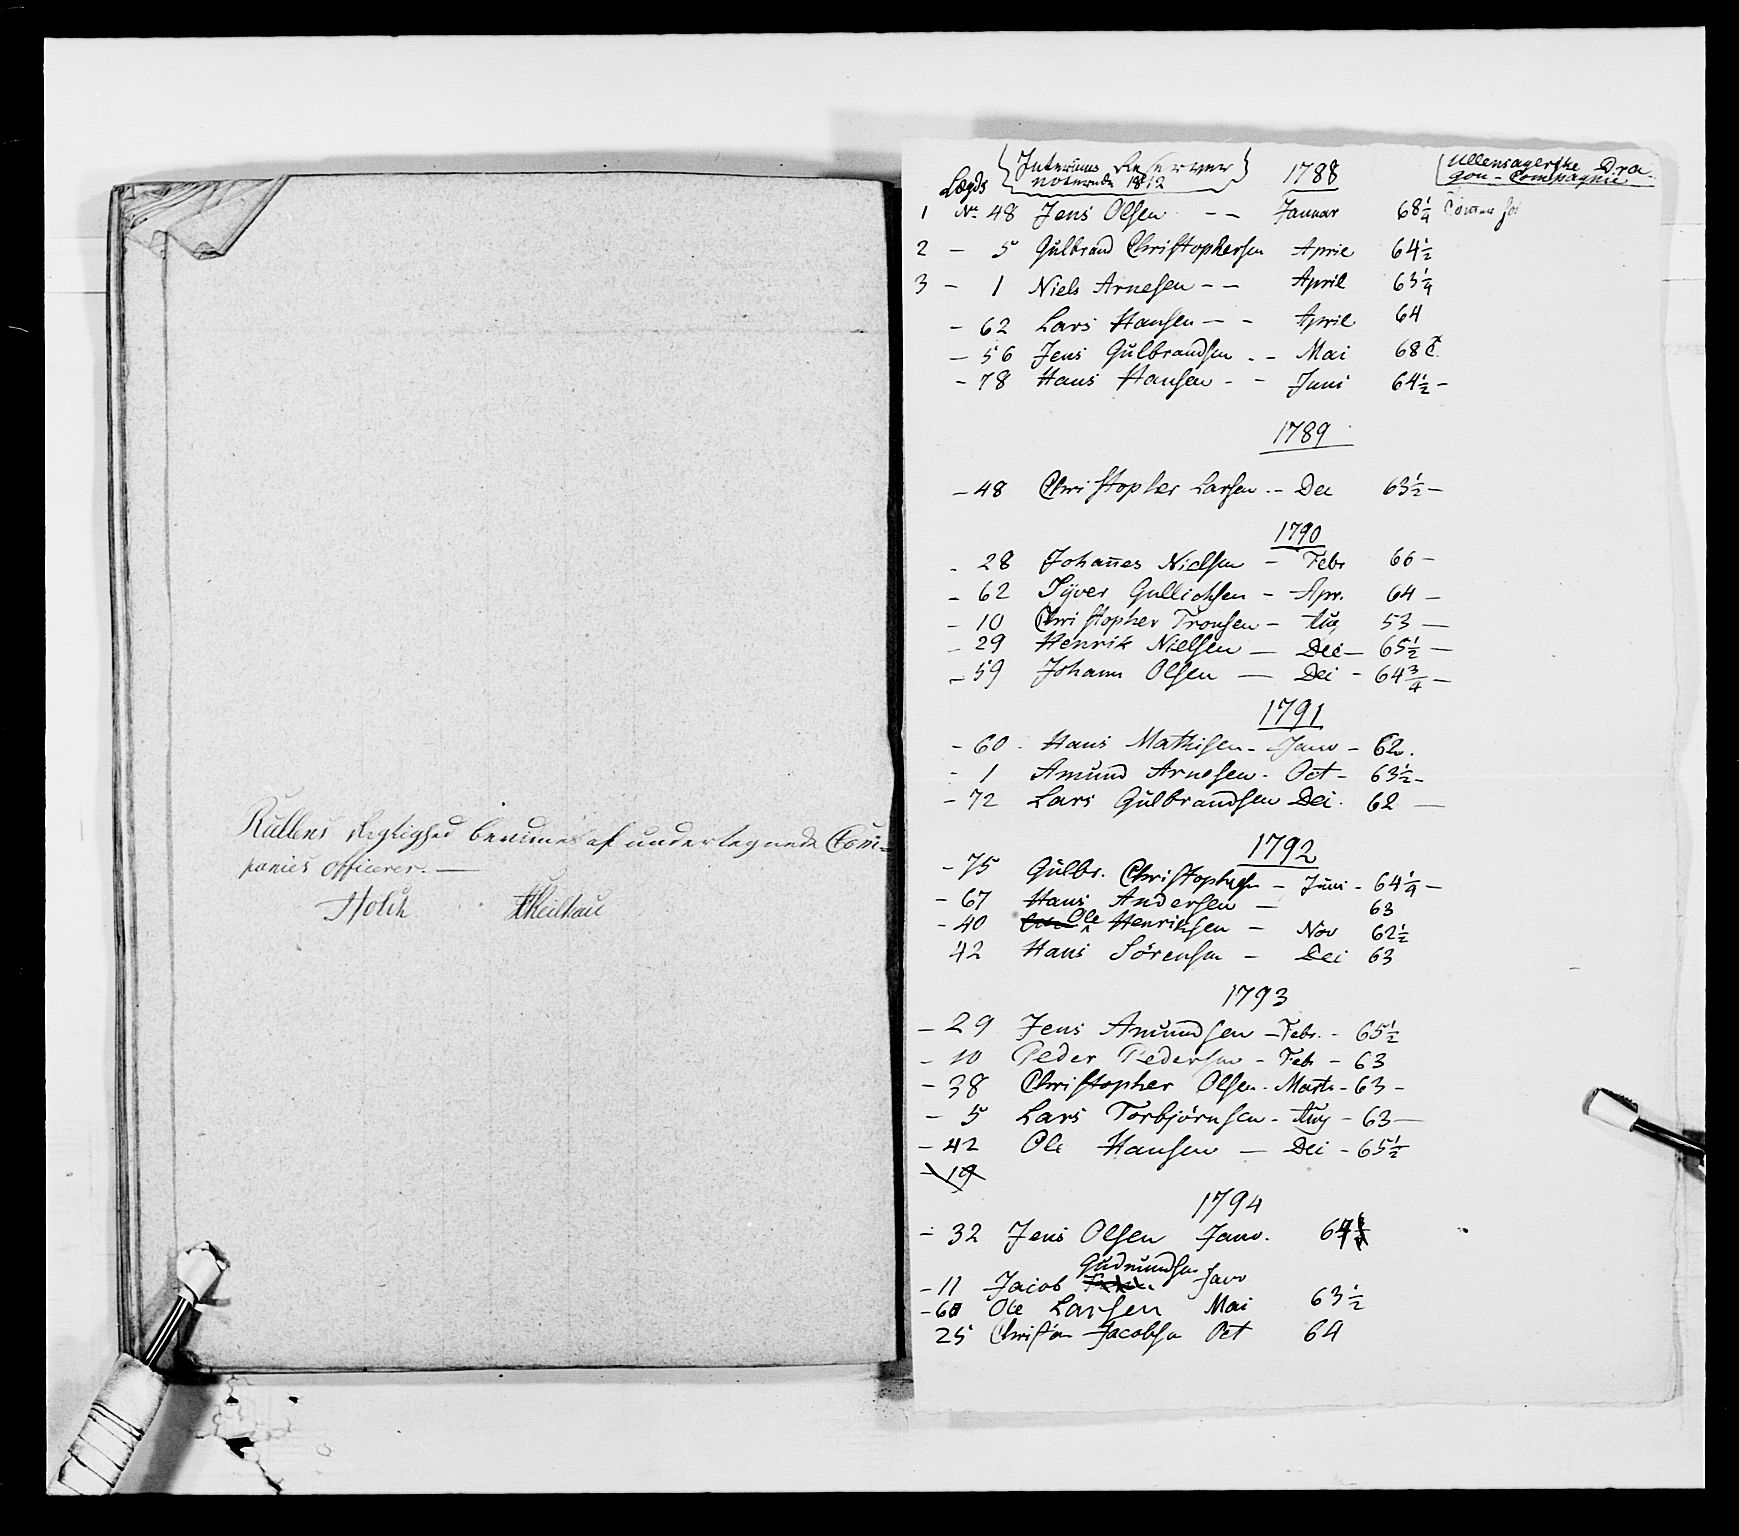 Rullens Rigtighed bevidnes af undertegnede Com=
panies Officerer. —
Holck Theilkau
Lægds {Interims Reserver noterede 1812} 1788 {Ullensagerske Dra-
gon-Compagnie
1 No. 48 Jens Olsen - - Januar 68 1/4
2 - 5 Gulbrand Christophersen April 64 1/2
3 - 1 Niels Arnesen - - April 63 1/4
- 62 Lars Hansen - - April 64
- 56 Jens Gulbrandsen - - Mai 68
- 78 Hans Hansen - - Juni 64 1/2 -
1789
- 48 Christopher Larsen - - Dec 63 1/2 -
1790
- 28 Johannes Nielsen - Febr 66 -
- 62 Syver Gullichsen - Apr. 64 -
- 10 Christopher Tronsen - Aug 53 -
- 29 Henrik Nielsen - Dec - 65 1/2 -
- 59 Johann Olsen - Dec - 64 3/4 -
1791
- 60 - Hans Mathisen - Janv - 62.
- 1 Amund Arnesen - Oct - 63 1/2 -
- 72 Lars Gulbrandsen Dec. 62 -
1792
- 75 Gulbr. Christophersen - Juni - 64 1/4 -
- 67 Hans Andersen - 63
- 40 Ole Henriksen - Nov 62 1/2
42 Hans Sörensen - Dec 63
1793
- 29 Jens Amundsen - Febr. - 65 1/2
- 10 Peder Pedersen - Feb - 63
- 38 Christopher Olsen - Marts - 63 -
- 5 Lars Torbjörnsen - Aug - 63 -
- 42 Ole Hansen - Dec - 65 1/2
- 19
1794
- 32 Jens Olsen Janv. 64
- 11 Jacob Gudmundsen Janv
- 60 Ole Larsen Mai 63 1/2
25 Christian Jacobsen Oct 64